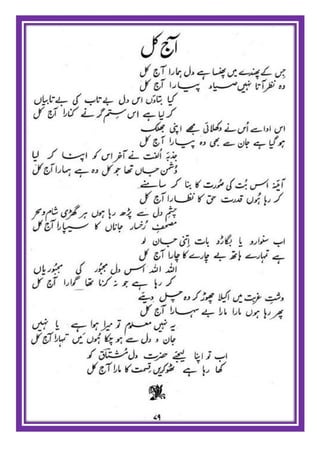 آج کل
جس کے پھندے میں پھنسا ہے دل ہمارا آج کل
وہ نظر آتا نہیں صیاد پیارا آج کل
کیا بتاؤں اس دل بے تاب کی بے تابیاں
کر لیا ہے اس ستم گر نے کنارا آج کل
اس ادا سے اُس نے دکھلائی مجھے اپنی جھلک
ہو گیا ہے جان سے بھی وہ پیارا آج کل
جذبۂ اُلفت نے آخر اس کو اپنا کر لیا
دُشمنِ جاں تھا جو کل وہ ہے ہمارا آج کل
آئینہ اُس بُت کی صورت کا بنا کر سامنے
کر رہا ہوں قدرتِ حق کا نظارا آج کل
چشمِ دل سے پڑھ رہا ہوں ہر گھڑی شام و سحر
مصحفِ رُخسارِ جاناں کا سیپارا آج کل
اب سنوارو یا بگاڑو بات اپنی جان لو
ہے تمہارے ہاتھ بے چارے کا چارا آج کل
اللہ اللہ اس دل مجبور کی مجبوریاں
کر رہا ہے جو نہ کرنا تھا گوارا آج کل
دشتِ غربت میں اکیلا چھوڑ کر وہ چل دیئے
پھر رہا ہوں مارا مارا بے سہارا آج کل
یہ نہیں معلوم تو میرا ہوا ہے یا نہیں
جان و دل سے ہو چکا ہوں میں تمہارا آج کل
اب تو اپنا لیجئے حضرت دل مشتاق کو
کھا رہا ہے ٹھوکریں قسمت کا مارا آج کل
۷۹